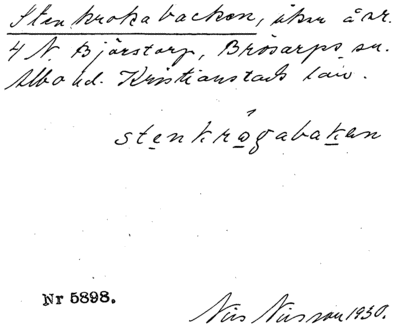 Stenkrokabacken, åker å nr.
4 N. Bjärstorp, Brösarps sn.
Albo hd. Kristianstads län.
stenkrågabaken
Nr 5898.
Nils Nilsson 1930.